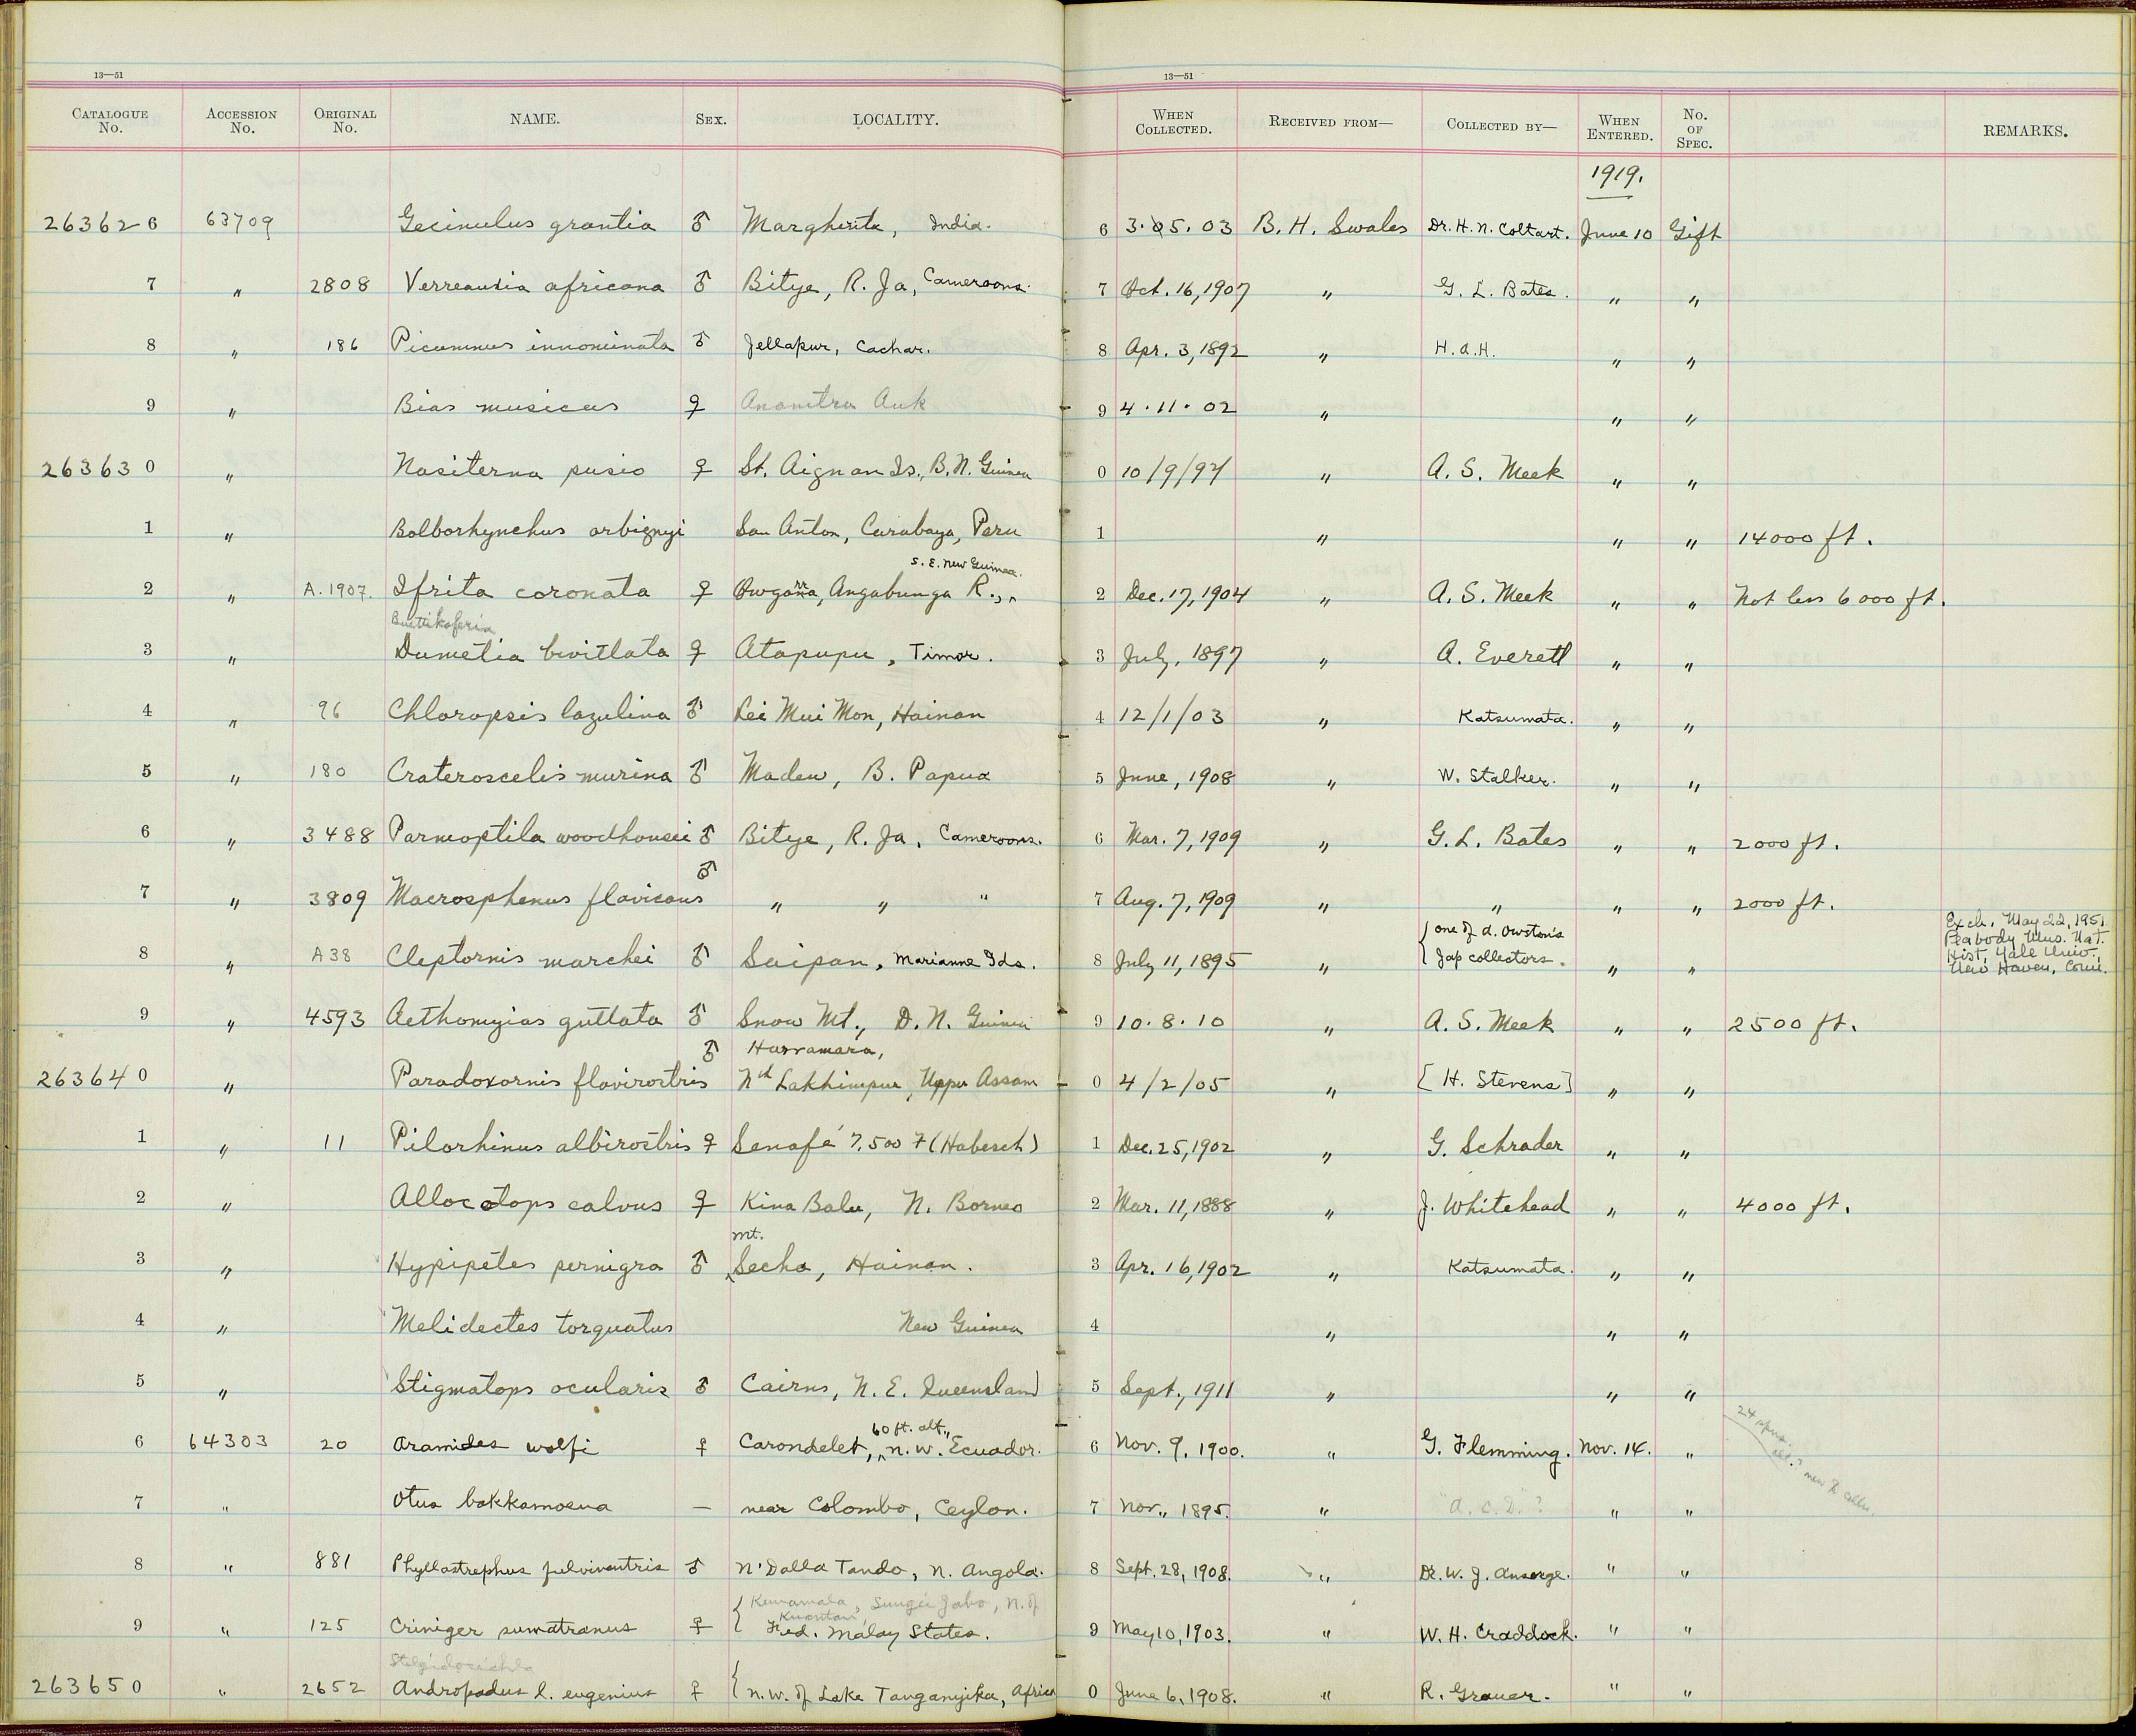 13—51 13—51
CATALOGUE No. ACCESSION No. ORIGINAL No. NAME. SEX. LOCALITY. WHEN COLLECTED. RECEIVED FROM— COLLECTED BY— WHEN ENTERED. No. OF SPEC. REMARKS.
1919.
263626 63709 Gecinulus grantia ♂ Margherita, India. 6 3.05.03 B. H. Swales Dr. H. N. Coltart. June 10 Gift
7 " 2808 Verreauxia africana ♂ Bitye, R. Ja, Cameroons. 7 Oct. 16, 1907 " G. L. Bates. " "
8 " 186 Picumnus innominata ♂ Jellapur, Cachar. 8 Apr. 3, 1892 " H.A.H. " "
9 " Bias musicus ♀ 9 4.11.02 " " "
263630 " Nasiterna pusio ♀ St. Aignan Is., B. N. Guinea 0 10/9/97 " A. S. Meek " "
1 " Bolborhynchus orbignyi San Anton, Carabaya, Peru 1 " " " 14000 ft.
S. E. New Guinea.
2 " A. 1907. Ifrita coronata ♀ Owgarra, Angabunga R., ^ 2 Dec. 17, 1904 " A. S. Meek " " Not less 6000 ft.
Buettikoferia
3 " Dumetia bivittata ♀ Atapupu, Timor. 3 July, 1897 " A. Everett " "
4 " 96 Chloropsis lazulina ♂ Lei Mui Mon, Hainan 4 12/1/03 " Katsumata. " "
5 " 180 Crateroscelis murina ♂ Madew, B. Papua 5 June, 1908 " W. Stalker. " "
6 " 3488 Parmoptila woodhousei ♂ Bitye, R. Ja, Cameroons. 6 Mar. 7, 1909 " G. L. Bates " " 2000 ft.
7 " 3809 Macrosphenus flavicans ♂ " " " 7 Aug. 7, 1909 " " " " 2000 ft.
8 " A38 Cleptornis marchei ♂ Saipan, Marianne Ids. 8 July 11, 1895 " { one of A. Owston's
Jap collectors. " "
Exch. May 22, 1951
Peabody Mus. Nat.
Hist. Yale Univ.,
New Haven, Conn.
9 " 4593 Aethomyias guttata ♂ Snow Mt., D. N. Guinea 9 10.8.10 " A. S. Meek " " 2500 ft.
Harramara,
263640 " Paradoxornis flavirostris ♂ Nth Lakhimpur, Upper Assam 0 4/2/05 " [H. Stevens] " "
1 " 11 Pilorhinus albirostris ♀ Senafé 7.500 F (Habesch) 1 Dec. 25, 1902 " G. Schrader " "
2 " Allocotops calvus ♀ Kina Balu, N. Borneo 2 Mar. 11, 1888 " J. Whitehead " " 4000 ft.
Mt.
3 " Hypipetes pernigra ♂ ^Secha, Hainan. 3 Apr. 16, 1902 " Katsumata. " "
4 " Melidectes torquatus New Guinea 4 " " "
5 " Stigmatops ocularis ♂ Cairns, N. E. Queensland 5 Sept., 1911 " " "
60 ft. alt.,
6 64303 20 Aramides wolfi ♀ Carondelet, ^ N. W. Ecuador. 6 Nov. 9, 1900. " G. Flemming. Nov. 14. " 24 spns.
7 " Otus bakkamoena — near Colombo, Ceylon. 7 Nov., 1895. " "A. C. D."? " "
8 " 881 Phyllastrephus fulviventris ♂ N'Dalla Tando, N. Angola. 8 Sept. 28, 1908. " Dr. W. J. Ansorge. " "
Sungei Jabo, N. of
Kuantan,
9 " 125 Criniger sumatranus ♀ { Fed. Malay States. 9 May 10, 1903. " W. H. Craddock. " "
Stelgidocichla
263650 " 2652 Andropadus l. eugenius ♀ { N. W. of Lake Tanganyika, Africa 0 June 6, 1908. " R. Grauer. " "